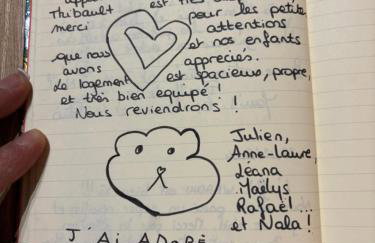 est très
Thibault pour les petites
merci attentions
que nous et nos enfants
avons appréciés.
Le logement est spacieux, propre,
et très bien equipé !
Nous reviendrons !
Julien,
Anne-Laure,
Léana
Maëlys
Rafaël...
et Nala !
J'AI ADORÉ